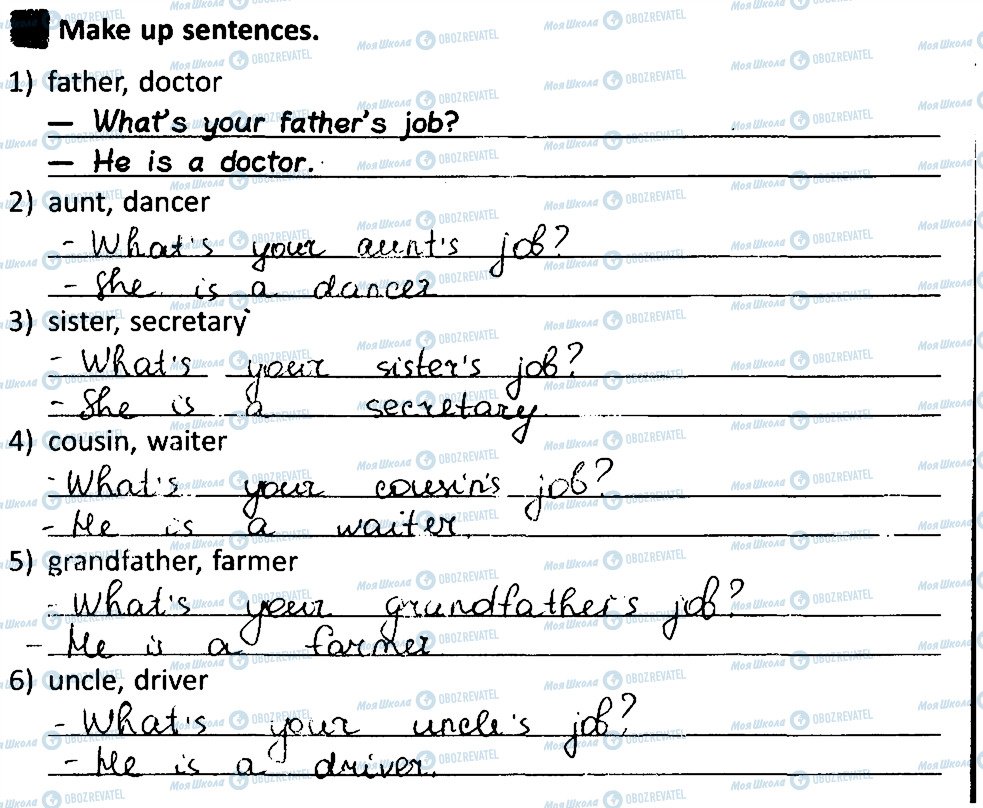 Make up sentences.
1) father, doctor
— What's your father's job?
— He is a doctor.
2) aunt, dancer
- What's your aunt's job?
- She is a dancer
3) sister, secretary
- What's your sister's job?
- She is a secretary
4) cousin, waiter
- What's your cousin's job?
- He is a waiter.
5) grandfather, farmer
- What's your grundfather's job?
- He is a farmer
6) uncle, driver
- What's your uncle's job?
- He is a driver.
Моя Школа OBOZREVATEL